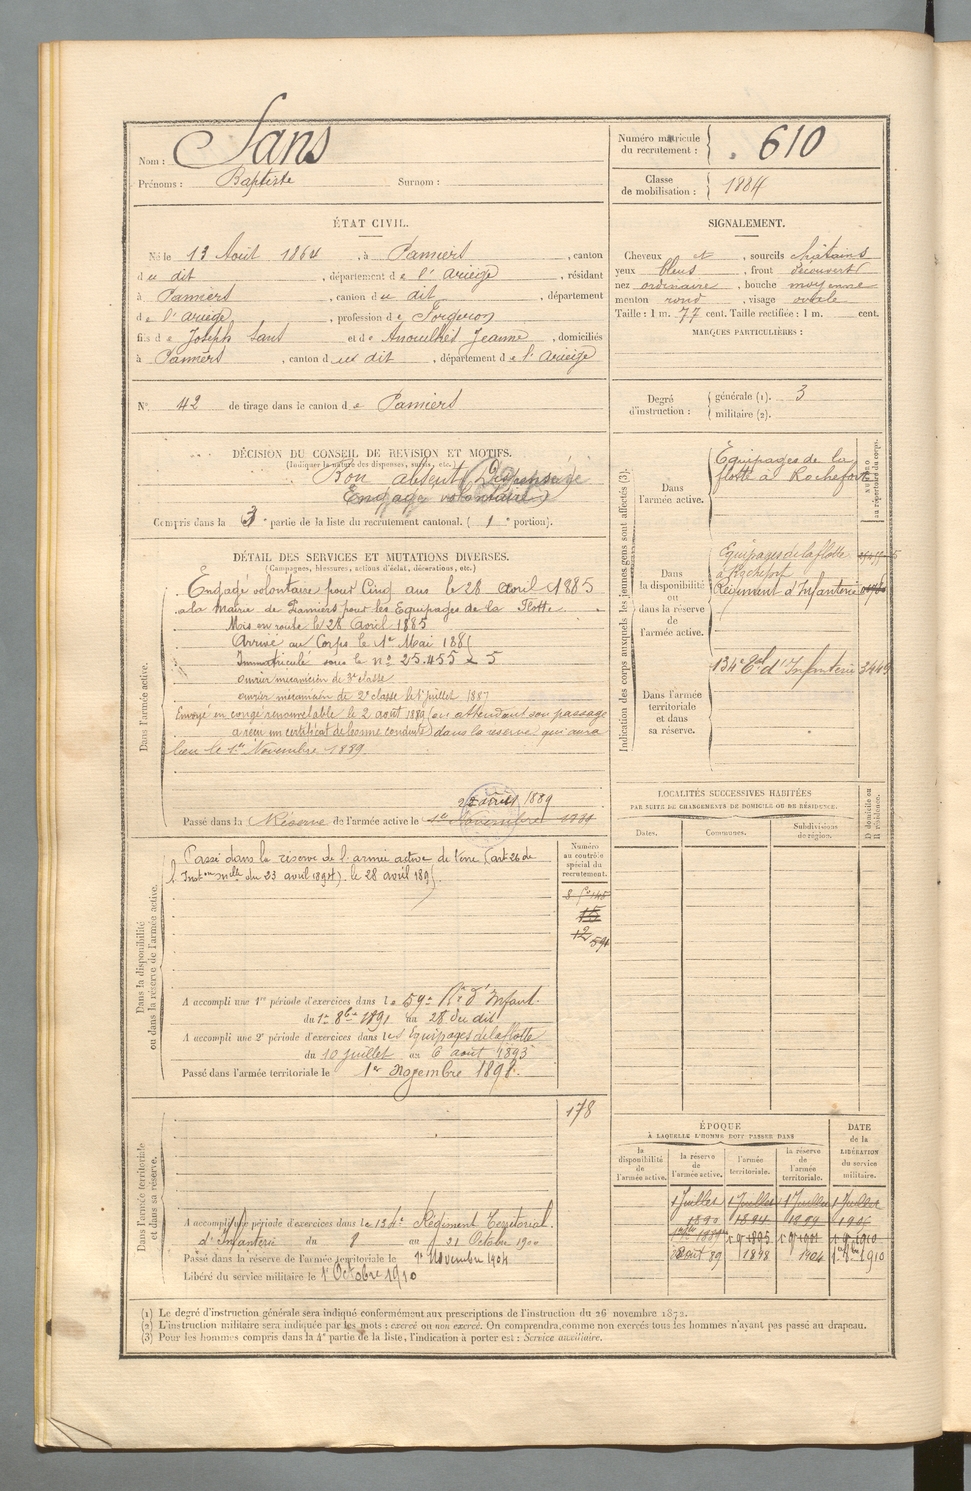 Nom : Sans
Prénoms : Baptiste Surnom :
Numéro matricule du recrutement : 610
Classe de mobilisation : 1884
ÉTAT CIVIL.
Né le 13 Août 1864, à Pamiers, canton
du dit, département de l'Ariège, résidant
à Pamiers, canton du dit, département
de l'Ariège, profession de Forgeron
fils de Joseph Sans et de Anouilhès Jeanne, domiciliés
à Pamiers, canton du dit, département de l'Ariège
SIGNALEMENT.
Cheveux et, sourcils châtains
yeux bleus, front découvert
nez ordinaire, bouche moyenne
menton rond, visage ovale
Taille : 1 m. 77 cent. Taille rectifiée : 1 m. cent.
MARQUES PARTICULIÈRES :
N° 42 de tirage dans le canton de Pamiers
Degré d'instruction : générale (1). 3
militaire (2).
DÉCISION DU CONSEIL DE REVISION ET MOTIFS.
(Indiquer la nature des dispenses, sursis, etc.)
Bon absent (Dispensé
Engagé volontaire)
Compris dans la 3e partie de la liste du recrutement cantonal. (1e portion).
DÉTAIL DES SERVICES ET MUTATIONS DIVERSES.
(Campagnes, blessures, actions d'éclat, décorations, etc.)
Dans l'armée active.
Engagé volontaire pour Cinq ans le 28 avril 1885
à la Mairie de Pamiers pour les Equipages de la Flotte.
Mis en route le 28 Avril 1885
Arrivé au Corps le 1er Mai 1885
Immatriculé sous le n° 25.455 = 5
ouvrier mécanicien de 3e classe
ouvrier mécanicien de 2e classe le 1er juillet 1887
Envoyé en congé renouvelable le 2 août 1889 (en attendant son passage
a reçu un certificat de bonne conduite) dans la réserve qui aura
lieu le 1er Novembre 1889.
1889
Passé dans la Réserve de l'armée active le 1er Novembre
Dans la disponibilité ou dans la réserve de l'armée active.
Passé dans la réserve de l'armée active de terre (art 26 de
l'Inston melle du 23 avril 1894). le 28 avril 1895.
Numéro au contrôle spécial du recrutement.
15
12
594
A accompli une 1re période d'exercices dans le 59e Rt d'Infant.
du 1er 8bre 1891 au 28 du dit
A accompli une 2e période d'exercices dans les Equipages de la flotte
du 10 juillet au 6 août 1893
Passé dans l'armée territoriale le 1er novembre 1898.
Dans l'armée territoriale et dans sa réserve.
178
A accompli une période d'exercices dans le 134e Régiment Territorial
d'Infanterie du 8 au 21 Octobre 1900
Passé dans la réserve de l'armée territoriale le 1er Novembre 1904
Libéré du service militaire le 1er Octobre 1910
Indication des corps auxquels les jeunes gens sont affectés (3).
NUMÉRO au répertoire du corps.
Dans l'armée active.
Equipages de la
flotte à Rochefort
Dans la disponibilité ou dans la réserve de l'armée active.
Equipages de la flotte
à Rochefort
Régiment d'Infanterie
Dans l'armée territoriale et dans sa réserve.
134e Ral d'Infanterie 3449
LOCALITÉS SUCCESSIVES HABITÉES
PAR SUITE DE CHANGEMENTS DE DOMICILE OU DE RÉSIDENCE.
D domicile ou R résidence.
Dates. Communes. Subdivisions de région.
ÉPOQUE
À LAQUELLE L'HOMME DOIT PASSER DANS
DATE de la LIBÉRATION du service militaire.
la disponibilité de l'armée active. la réserve de l'armée active. l'armée territoriale. la réserve de l'armée territoriale.
1 Juillet 1 Juillet 1 Juillet 1 Juillet
1890 1894 1899
1910
2 août 89 1898 1904 1910
(1) Le degré d'instruction générale sera indiqué conformément aux prescriptions de l'instruction du 26 novembre 1872.
(2) L'instruction militaire sera indiquée par les mots : exercé ou non exercé. On comprendra, comme non exercés tous les hommes n'ayant pas passé au drapeau.
(3) Pour les hommes compris dans la 4e partie de la liste, l'indication à porter est : Service auxiliaire.